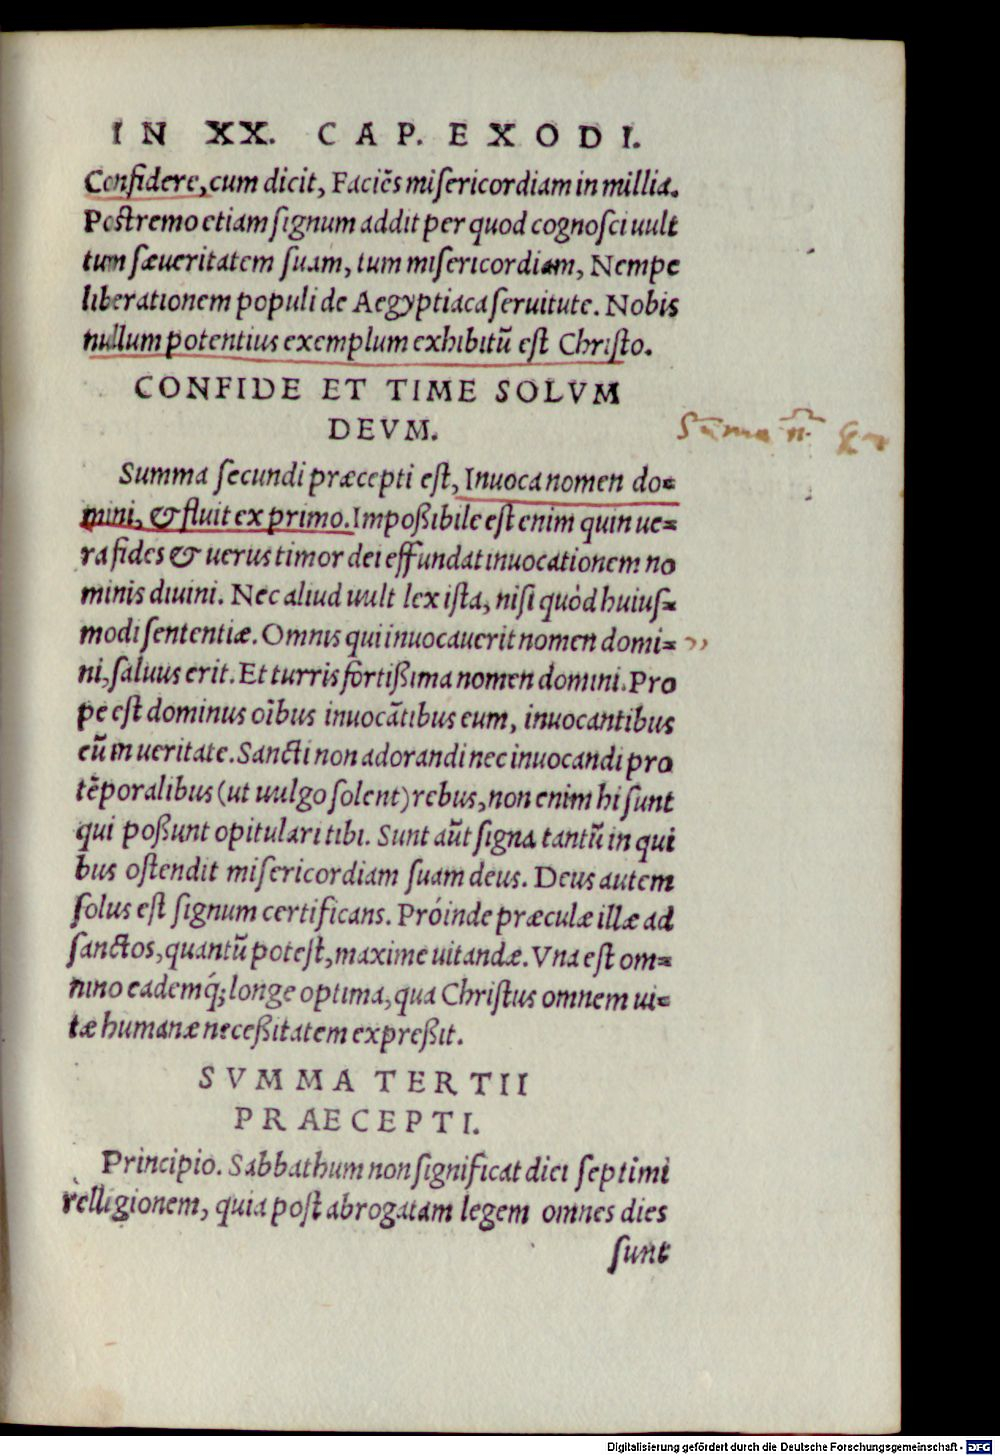 IN XX. CAP. EXODI.
Confidere, cum dicit, Faciẽs misericordiam in millia.
Postremo etiam signum addit per quod cognosci uult
tum sæueritatem suam, tum misericordiam, Nempe
liberationem populi de Aegyptiaca seruitute. Nobis
nullum potentius exemplum exhibitũ est Christo.
CONFIDE ET TIME SOLVM
DEVM.
Summa secundi præcepti est, Inuoca nomen do=
mini, & fluit ex primo. Impoßibile est enim quin ue=
ra fides & uerus timor dei effundat inuocationem no
minis diuini. Nec aliud uult lex ista, nisi quòd huius=
modi sententiæ. Omnis qui inuocauerit nomen domi=
ni, saluus erit. Et turris fortißima nomen domini. Pro
pe est dominus oĩbus inuocãtibus eum, inuocantibus
eũ in ueritate. Sancti non adorandi nec inuocandi pro
tẽporalibus (ut uulgo solent) rebus, non enim hi sunt
qui poßunt opitulari tibi. Sunt aũt signa tantũ in qui
bus ostendit misericordiam suam deus. Deus autem
solus est signum certificans. Próinde præculæ illæ ad
sanctos, quantũ potest, maxime uitandæ. Vna est om=
nino eademq́; longe optima, qua Christus omnem ui=
tæ humanæ neceßitatem expreßit.
SVMMA TERTII
PRAECEPTI.
Principio. Sabbathum non significat diei septimi
relligionem, quia post abrogatam legem omnes dies
sunt
Digitalisierung gefördert durch die Deutsche Forschungsgemeinschaft - DFG